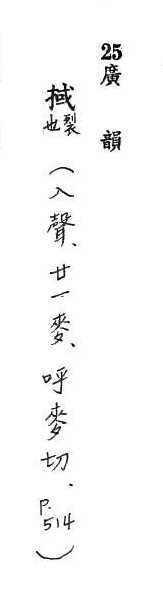 25廣韻
掝裂也（入聲、廿一麥、呼麥切．P.514）